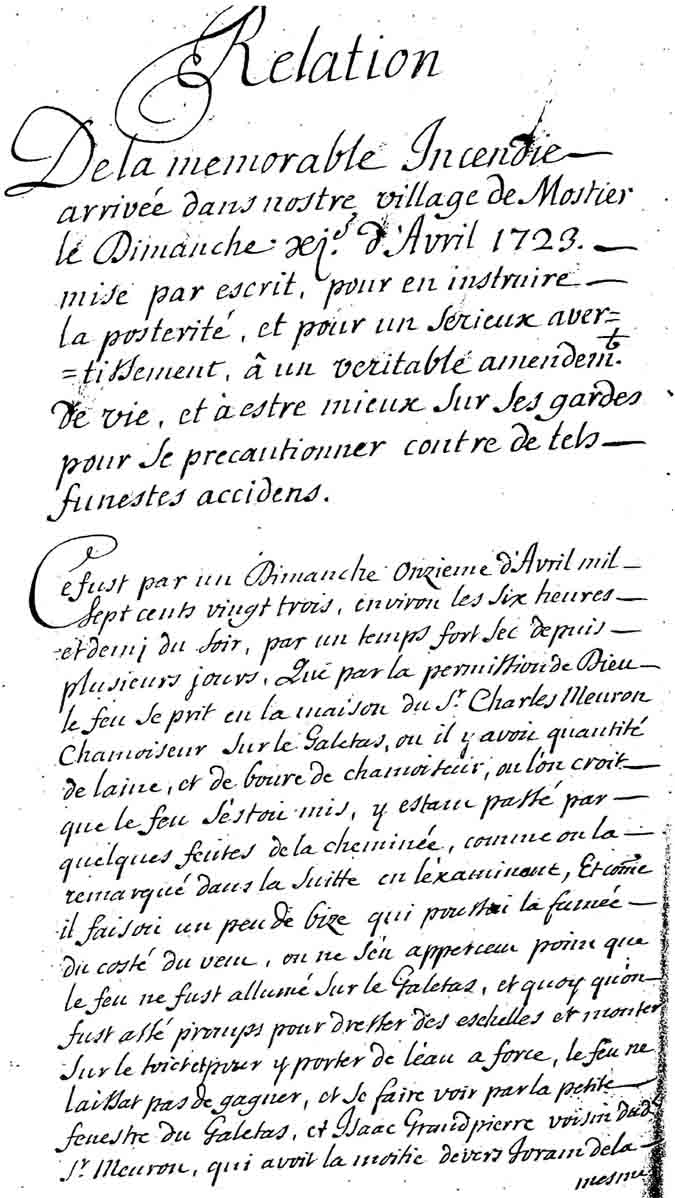 Relation
De la memorable Incendie
arrivée dans nostre village de Mostier
le Dimanche xj.e d'Avril 1723.
mise par escrit, pour en instruire
la posterité, et pour un serieux aver=
=tissement, â un veritable amendem.t
de vie, et à estre mieux sur ses gardes
pour se precautionner contre de tels
funestes accidens.
Ce fust par un Dimanche onzieme d'Avril mil
sept cents vingt trois, environ les six heures
et demj du soir, par un temps fort sec depuis
plusieurs jours, Que par la permission de Dieu
le feu se prit en la maison du Sr. Charles Meuron
Chamoiseur sur le Galetas, ou il y avoit quantité
de laine, et de boure de chamoiseur, ou l'on croit
que le feu s'estoit mis, y estant passé par
quelques fentes de la cheminée, comme on la
remarqué dans la suitte en l'examinant, Et come
il faisoit un peu de bize qui poussoi la fumée
du costé du vent, on ne s'en apperceut point que
le feu ne fust allumé sur le Galetas, et quoy qu'on
fust assé promps pour dresser des eschelles et monter
sur le toict et pour y porter de l'eau a force, le feu ne
laissat pas de gagner, et se faire voir par la petite
fenestre du Galetas, et Isaac Grandpierre voisin dud.
Sr. Meuron, qui avoit la moitie devers Joran de la
mesme